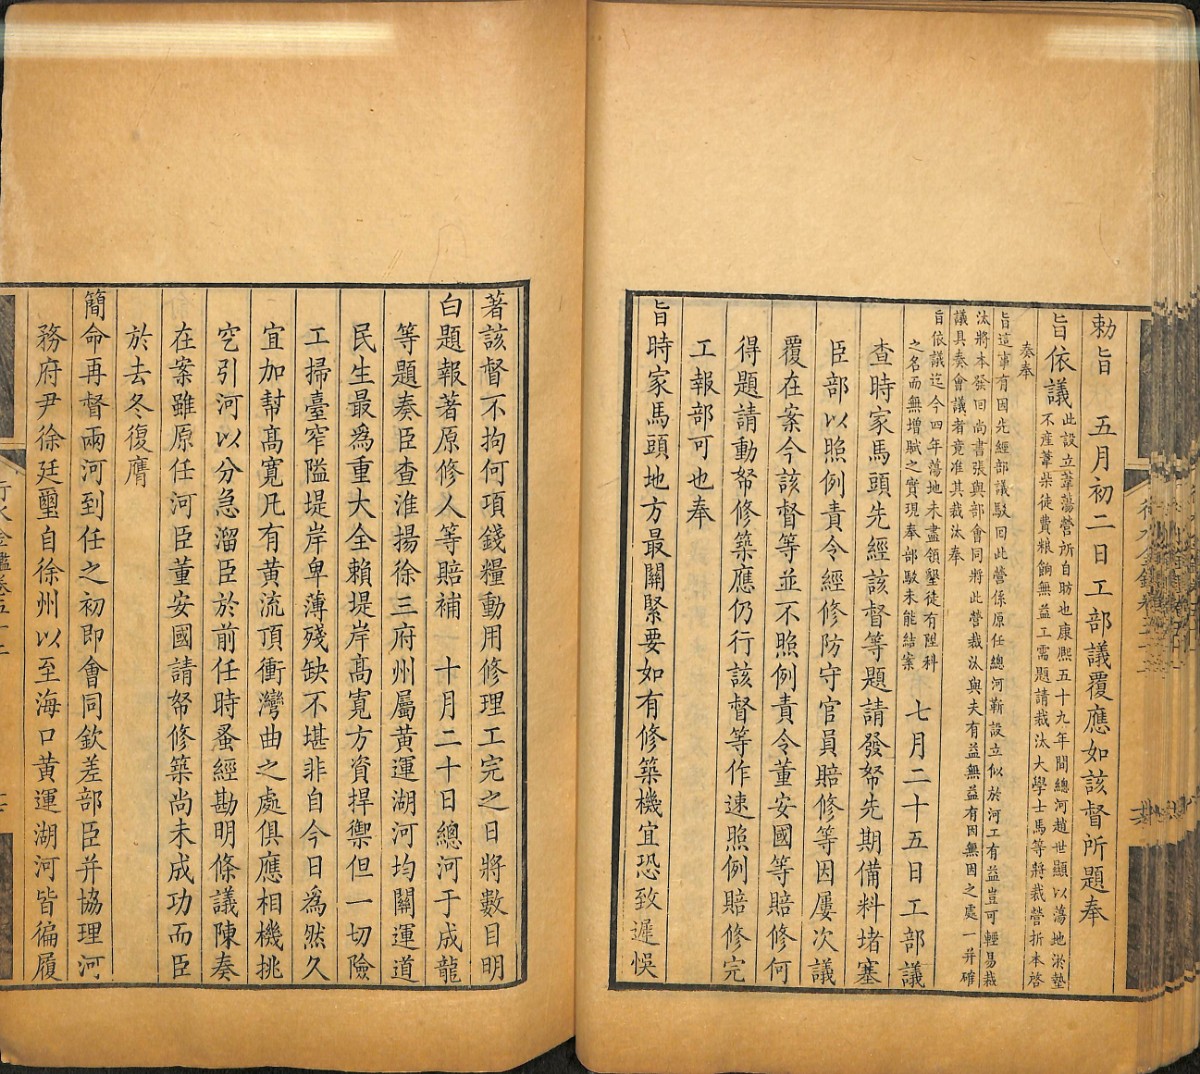 勅旨　五月初二日工部議覆應如該督所題奉
旨依議
此設立葦蕩營所自昉也康熙五十九年間總河趙世顯以蕩地淤墊
不産葦柴徒費粮餉無益工需題請裁汰大學士馬等將裁營折本啓
奏奉
旨這事有因先經部議駁回此營係原任總河靳設立似於河工有益豈可輕易裁
汰將本發回尚書張與部會同將此營裁汰與夫有益無益有因無因之處一并確
議具奏會議者竟准其裁汰奉
旨依議迄今四年蕩地未盡領墾徒有陞科
之名而無增賦之實現奉部駁未能結案
七月二十五日工部議
查時家馬頭先經該督等題請發帑先期備料堵塞
臣部以照例責令經修防守官員賠修等因屢次議
覆在案今該督等並不照例責令董安國等賠修何
得題請動帑修築應仍行該督等作速照例賠修完
工報部可也奉
旨時家馬頭地方最關緊要如有修築機宜恐致遲悞
著該督不拘何項錢糧動用修理工完之日將數目明
白題報著原修人等賠補　十月二十日總河于成龍
等題奏臣查淮揚徐三府州屬黄運湖河均關運道
民生最爲重大全賴堤岸髙寛方資捍禦但一切險
工掃臺窄隘堤岸卑薄殘缺不堪非自今日爲然久
宜加幫髙寛凡有黄流頂衝灣曲之處俱應相機挑
空引河以分急溜臣於前任時蚤經勘明條議陳奏
在案雖原任河臣董安國請帑修築尚未成功而臣
於去冬復膺
簡命再督兩河到任之初即會同欽差部臣并協理河
務府尹徐廷璽自徐州以至海口黄運湖河皆徧履